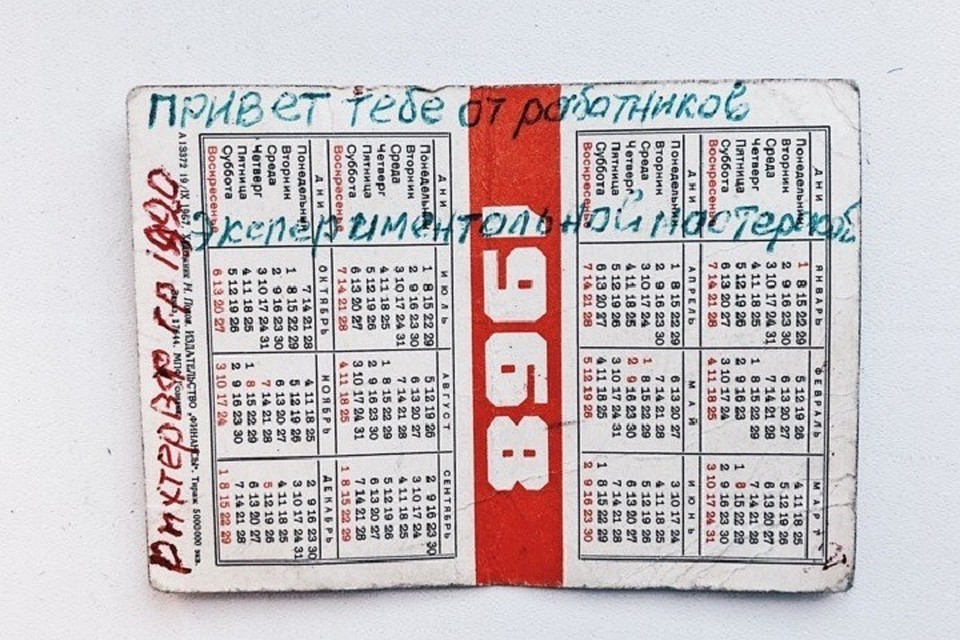 ПРИВЕТ тебе от работников
Экспериментальной мастерской
1968
ДНИ ЯНВАРЬ ФЕВРАЛЬ МАРТ
Понедельник 1 8 15 22 29 5 12 19 26 4 11 18 25
Вторник 2 9 16 23 30 6 13 20 27 5 12 19 26
Среда 3 10 17 24 31 7 14 21 28 6 13 20 27
Четверг 4 11 18 25 1 8 15 22 29 7 14 21 28
Пятница 5 12 19 26 2 9 16 23 1 8 15 22 29
Суббота 6 13 20 27 3 10 17 24 2 9 16 23 30
Воскресенье 7 14 21 28 4 11 18 25 3 10 17 24 31
ДНИ АПРЕЛЬ МАЙ ИЮНЬ
Понедельник 1 8 15 22 29 6 13 20 27 3 10 17 24
Вторник 2 9 16 23 30 7 14 21 28 4 11 18 25
Среда 3 10 17 24 1 8 15 22 29 5 12 19 26
Четверг 4 11 18 25 2 9 16 23 30 6 13 20 27
Пятница 5 12 19 26 3 10 17 24 31 7 14 21 28
Суббота 6 13 20 27 4 11 18 25 1 8 15 22 29
Воскресенье 7 14 21 28 5 12 19 26 2 9 16 23 30
ДНИ ИЮЛЬ АВГУСТ СЕНТЯБРЬ
Понедельник 1 8 15 22 29 5 12 19 26 2 9 16 23 30
Вторник 2 9 16 23 30 6 13 20 27 3 10 17 24
Среда 3 10 17 24 31 7 14 21 28 4 11 18 25
Четверг 4 11 18 25 1 8 15 22 29 5 12 19 26
Пятница 5 12 19 26 2 9 16 23 30 6 13 20 27
Суббота 6 13 20 27 3 10 17 24 31 7 14 21 28
Воскресенье 7 14 21 28 4 11 18 25 1 8 15 22 29
ДНИ ОКТЯБРЬ НОЯБРЬ ДЕКАБРЬ
Понедельник 7 14 21 28 4 11 18 25 2 9 16 23 30
Вторник 1 8 15 22 29 5 12 19 26 3 10 17 24 31
Среда 2 9 16 23 30 6 13 20 27 4 11 18 25
Четверг 3 10 17 24 31 7 14 21 28 5 12 19 26
Пятница 4 11 18 25 1 8 15 22 29 6 13 20 27
Суббота 5 12 19 26 2 9 16 23 30 7 14 21 28
Воскресенье 6 13 20 27 3 10 17 24 1 8 15 22 29
А 13372 19/IX 1967. Художник Н. ИЗДАТЕЛЬСТВО „ФИНАНСЫ". Тираж 5 000 000 экз.
Заказ 17644. МПФ Гознака